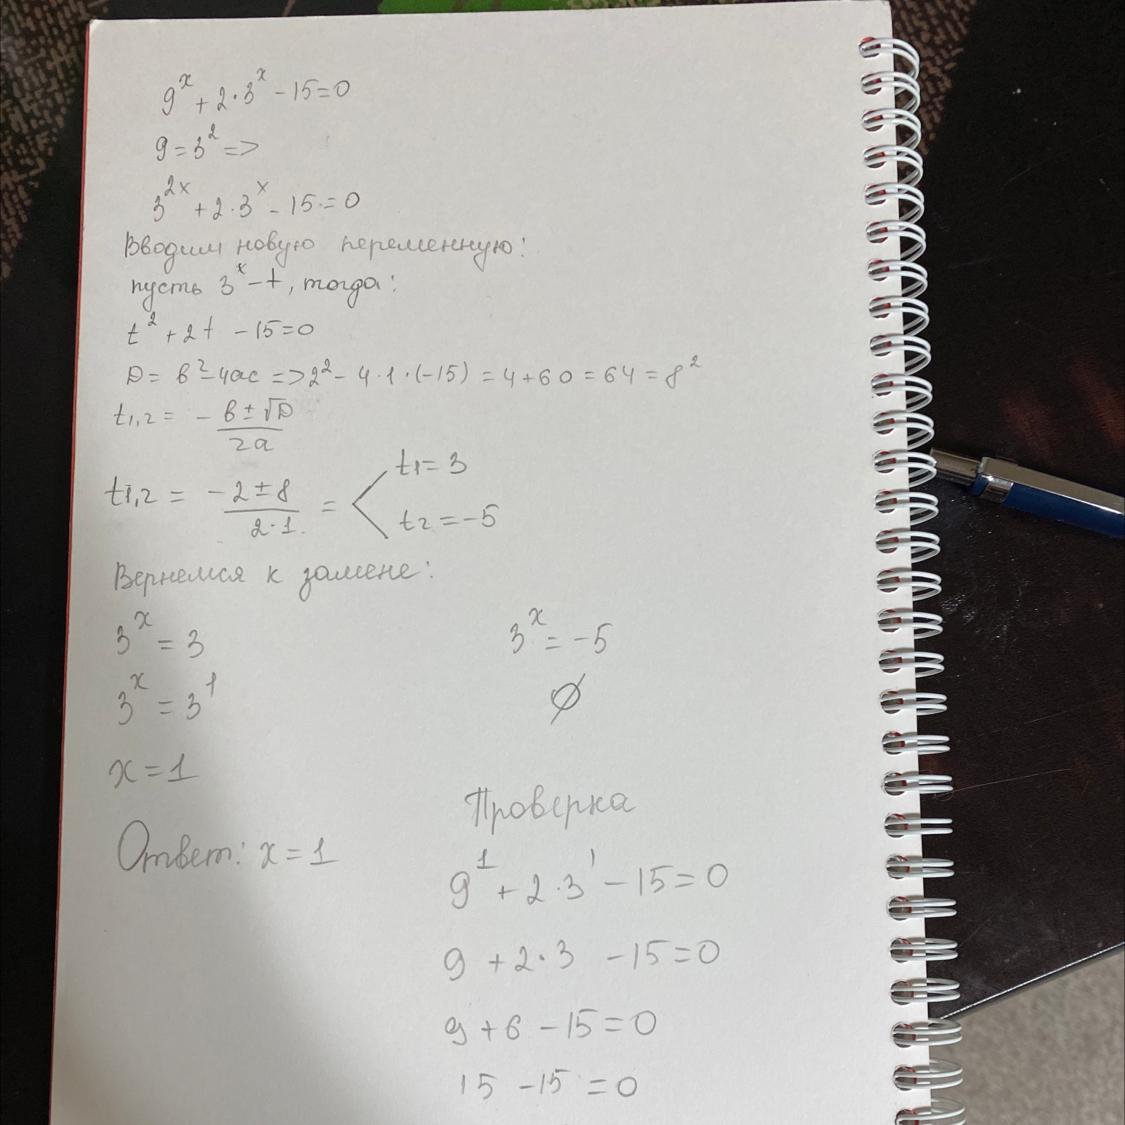 9^x + 2·3^x - 15 = 0
9 = 3^2 =>
3^2x + 2·3^x - 15 = 0
Вводим новую переменную:
пусть 3^x - t, тогда:
t^2 + 2t - 15 = 0
D = b^2 - 4ac => 2^2 - 4·1·(-15) = 4 + 60 = 64 = 8^2
t1,2 = - b ± √D / 2a
t1,2 = - 2 ± 8 / 2·1 = < t1 = 3
t2 = -5
Вернемся к замене:
3^x = 3 3^x = -5
3^x = 3^1 ∅
x = 1
Ответ: x = 1
Проверка
9^1 + 2·3^1 - 15 = 0
9 + 2·3 - 15 = 0
9 + 6 - 15 = 0
15 - 15 = 0